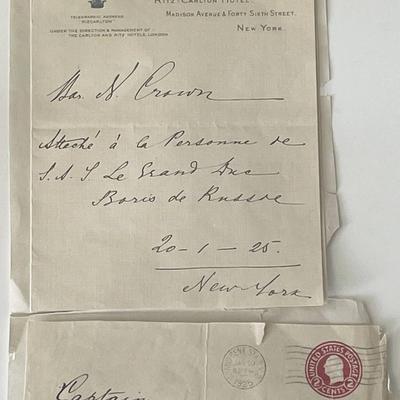 RITZ-CARLTON HOTEL.
MADISON AVENUE & FORTY SIXTH STREET,
NEW YORK.
TELEGRAPHIC ADDRESS
"RIZCARLTON"
UNDER THE DIRECTION & MANAGEMENT OF
THE CARLTON AND RITZ HOTELS, LONDON
N. Crown
Attaché à la Personne de
S. A. I. Le Grand Duc
Boris de Russie
20-1-25.
New-York
1925
UNITED STATES POSTAGE
2 CENTS 2
Captain